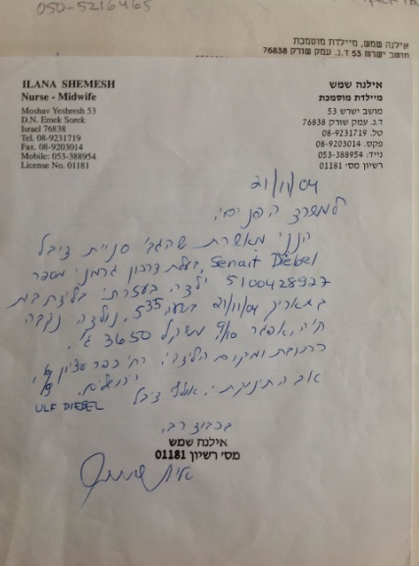 050-5216465
אילנה שמש, מיילדת מוסמכת
מושב ישרש 53 ד.נ. עמק שורק 76838
ILANA SHEMESH
Nurse - Midwife
Moshav Yeshresh 53
D.N. Emek Sorek
Israel 76838
Tel. 08-9231719
Fax. 08-9203014
Mobile: 053-388954
License No. 01181
אילנה שמש
מיילדת מוסמכת
מושב ישרש 53
ד.נ. עמק שורק 76838
טל. 08-9231719
פקס. 08-9203014
נייד: 053-388954
רשיון מס' 01181
21/11/04
למשרד הפנים,
הנני מאשרת שהגב' סניית דיבל
Senait Diebel, בעלת דרכון גרמני מספר
5100428927 ילדה בעזרתי בלידת בית
בתאריך 21/11/04 בשעה 5.35, נולדה נקבה
חיה, אפגר 9/10 משקל 3650 ג'.
כתובת ומקום הלידה: רח' כפר עציון
ירושלים.
אב התינוקת: אולף דיבל
ULF DIEBEL
בכבוד רב,
אילנה שמש
מס' רשיון 01181